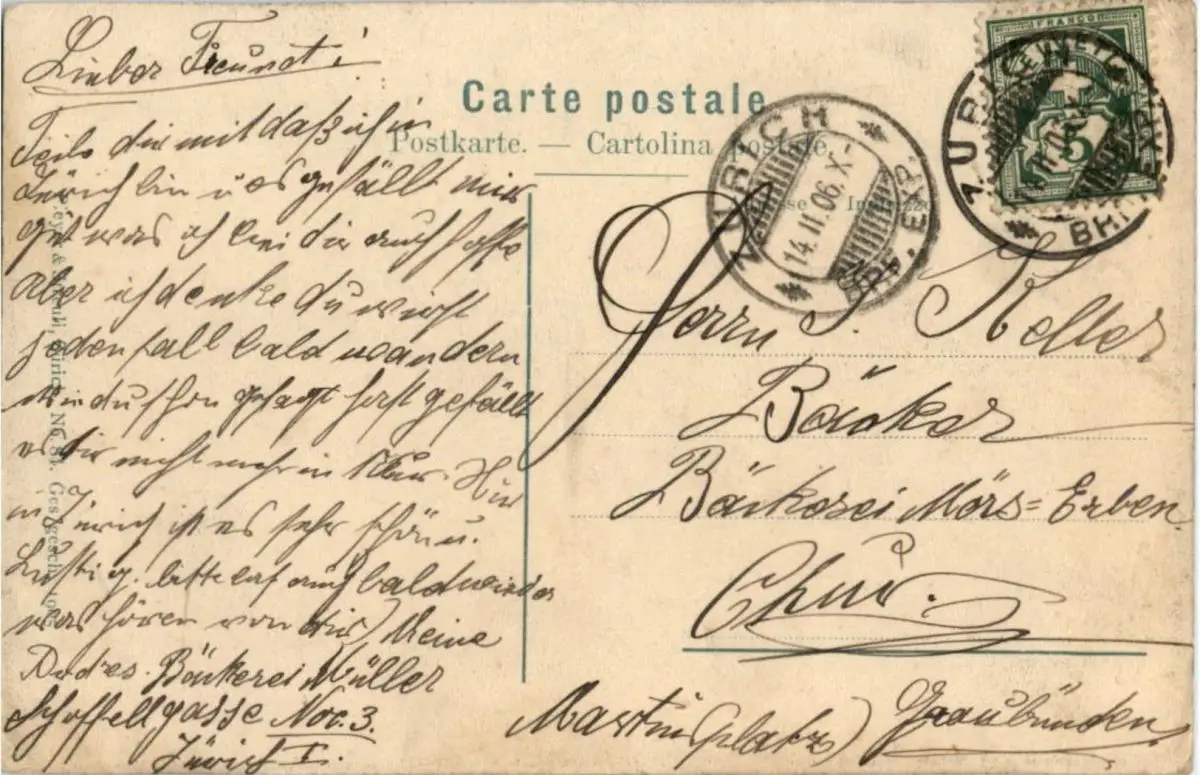 Carte postale
Postkarte. — Cartolina postale.
FRANCO
5
ZÜRICH
14.II.06.X-
BRF. EXP.
ZÜRICH
Lieber Freund!
Teile dir mit daß ich in
Zürich bin u es gefällt mir
gut was ich bei dir auch hoffe
Aber ich denke du wirst
jedenfall bald wandern
du schon gesagt hast gefällt
es dir nicht mehr in Chur. Hier
in Zürich ist es sehr schön u.
Lustig. bitte laß auch bald wieder
was hören von dir) Meine
Adres. Bäckerei Müller
Schoffellgasse Nor. 3.
Zürich I.
Herrn J. Keller
Bäcker
Bäckerei Mörs=Erben
Chur.
Martin(platz) Graubünden